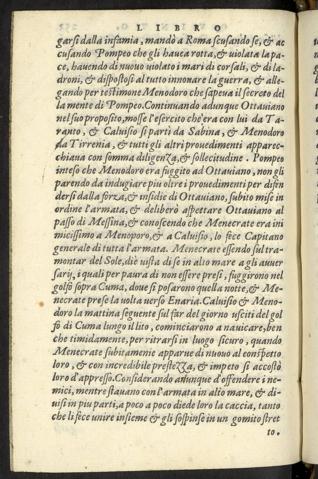 LIBRO
garsi dalla infamia, mandò a Roma scusando se, & ac
cusando Pompeo che gli hauea rotta, & uiolata la pa-
ce, hauendo di nuouo uiolato i mari di corsali, & di la-
droni, & dispostosi al tutto innouare la guerra, & alle-
gando per testimone Menodoro che sapeua il secreto del
la mente di Pompeo. Continuando adunque Ottauiano
nel suo proposito, mosse l'esercito che era con lui da Ta-
ranto, & Caluisio si partì da Sabina, & Menodoro
da Tirrenia, & tutti gli altri prouedimenti apparec-
chiaua con somma diligenza, & sollecitudine. Pompeo
inteso che Menodoro era fuggito ad Ottauiano, non gli
parendo da indugiare piu oltre i prouedimenti per difen
dersi dalla forza, & insidie di Ottauiano, subito mise in
ordine l'armata, & deliberò aspettare Ottauiano al
passo di Messina, & conoscendo che Menecrate era ini
micissimo a Menoporo, & a Caluisio, lo fece Capitano
generale di tutta l'armata. Menecrate essendo sul tra-
montar del Sole, diè uista di se in alto mare a gli auuer
sarij, i quali per paura di non essere presi, fuggirono nel
golfo sopra Cuma, doue si posarono quella notte, & Me-
necrate prese la uolta uerso Enaria. Caluisio & Meno-
doro la mattina seguente sul far del giorno usciti del gol
fo di Cuma lungo il lito, cominciarono a nauicare, ben
che timidamente, per ritrarsi in luogo sicuro, quando
Menecrate subitamente apparue di nuouo al conspetto
loro, & con incredibile prestezza, & impeto si accostò
loro d'appresso. Considerando adunque d'offendere i ne-
mici, mentre stauano con l'armata in alto mare, & di-
uisi in piu parti, a poco a poco diede loro la caccia, tanto
che li fece unire insieme & gli sospinse in un gomito stret
to.